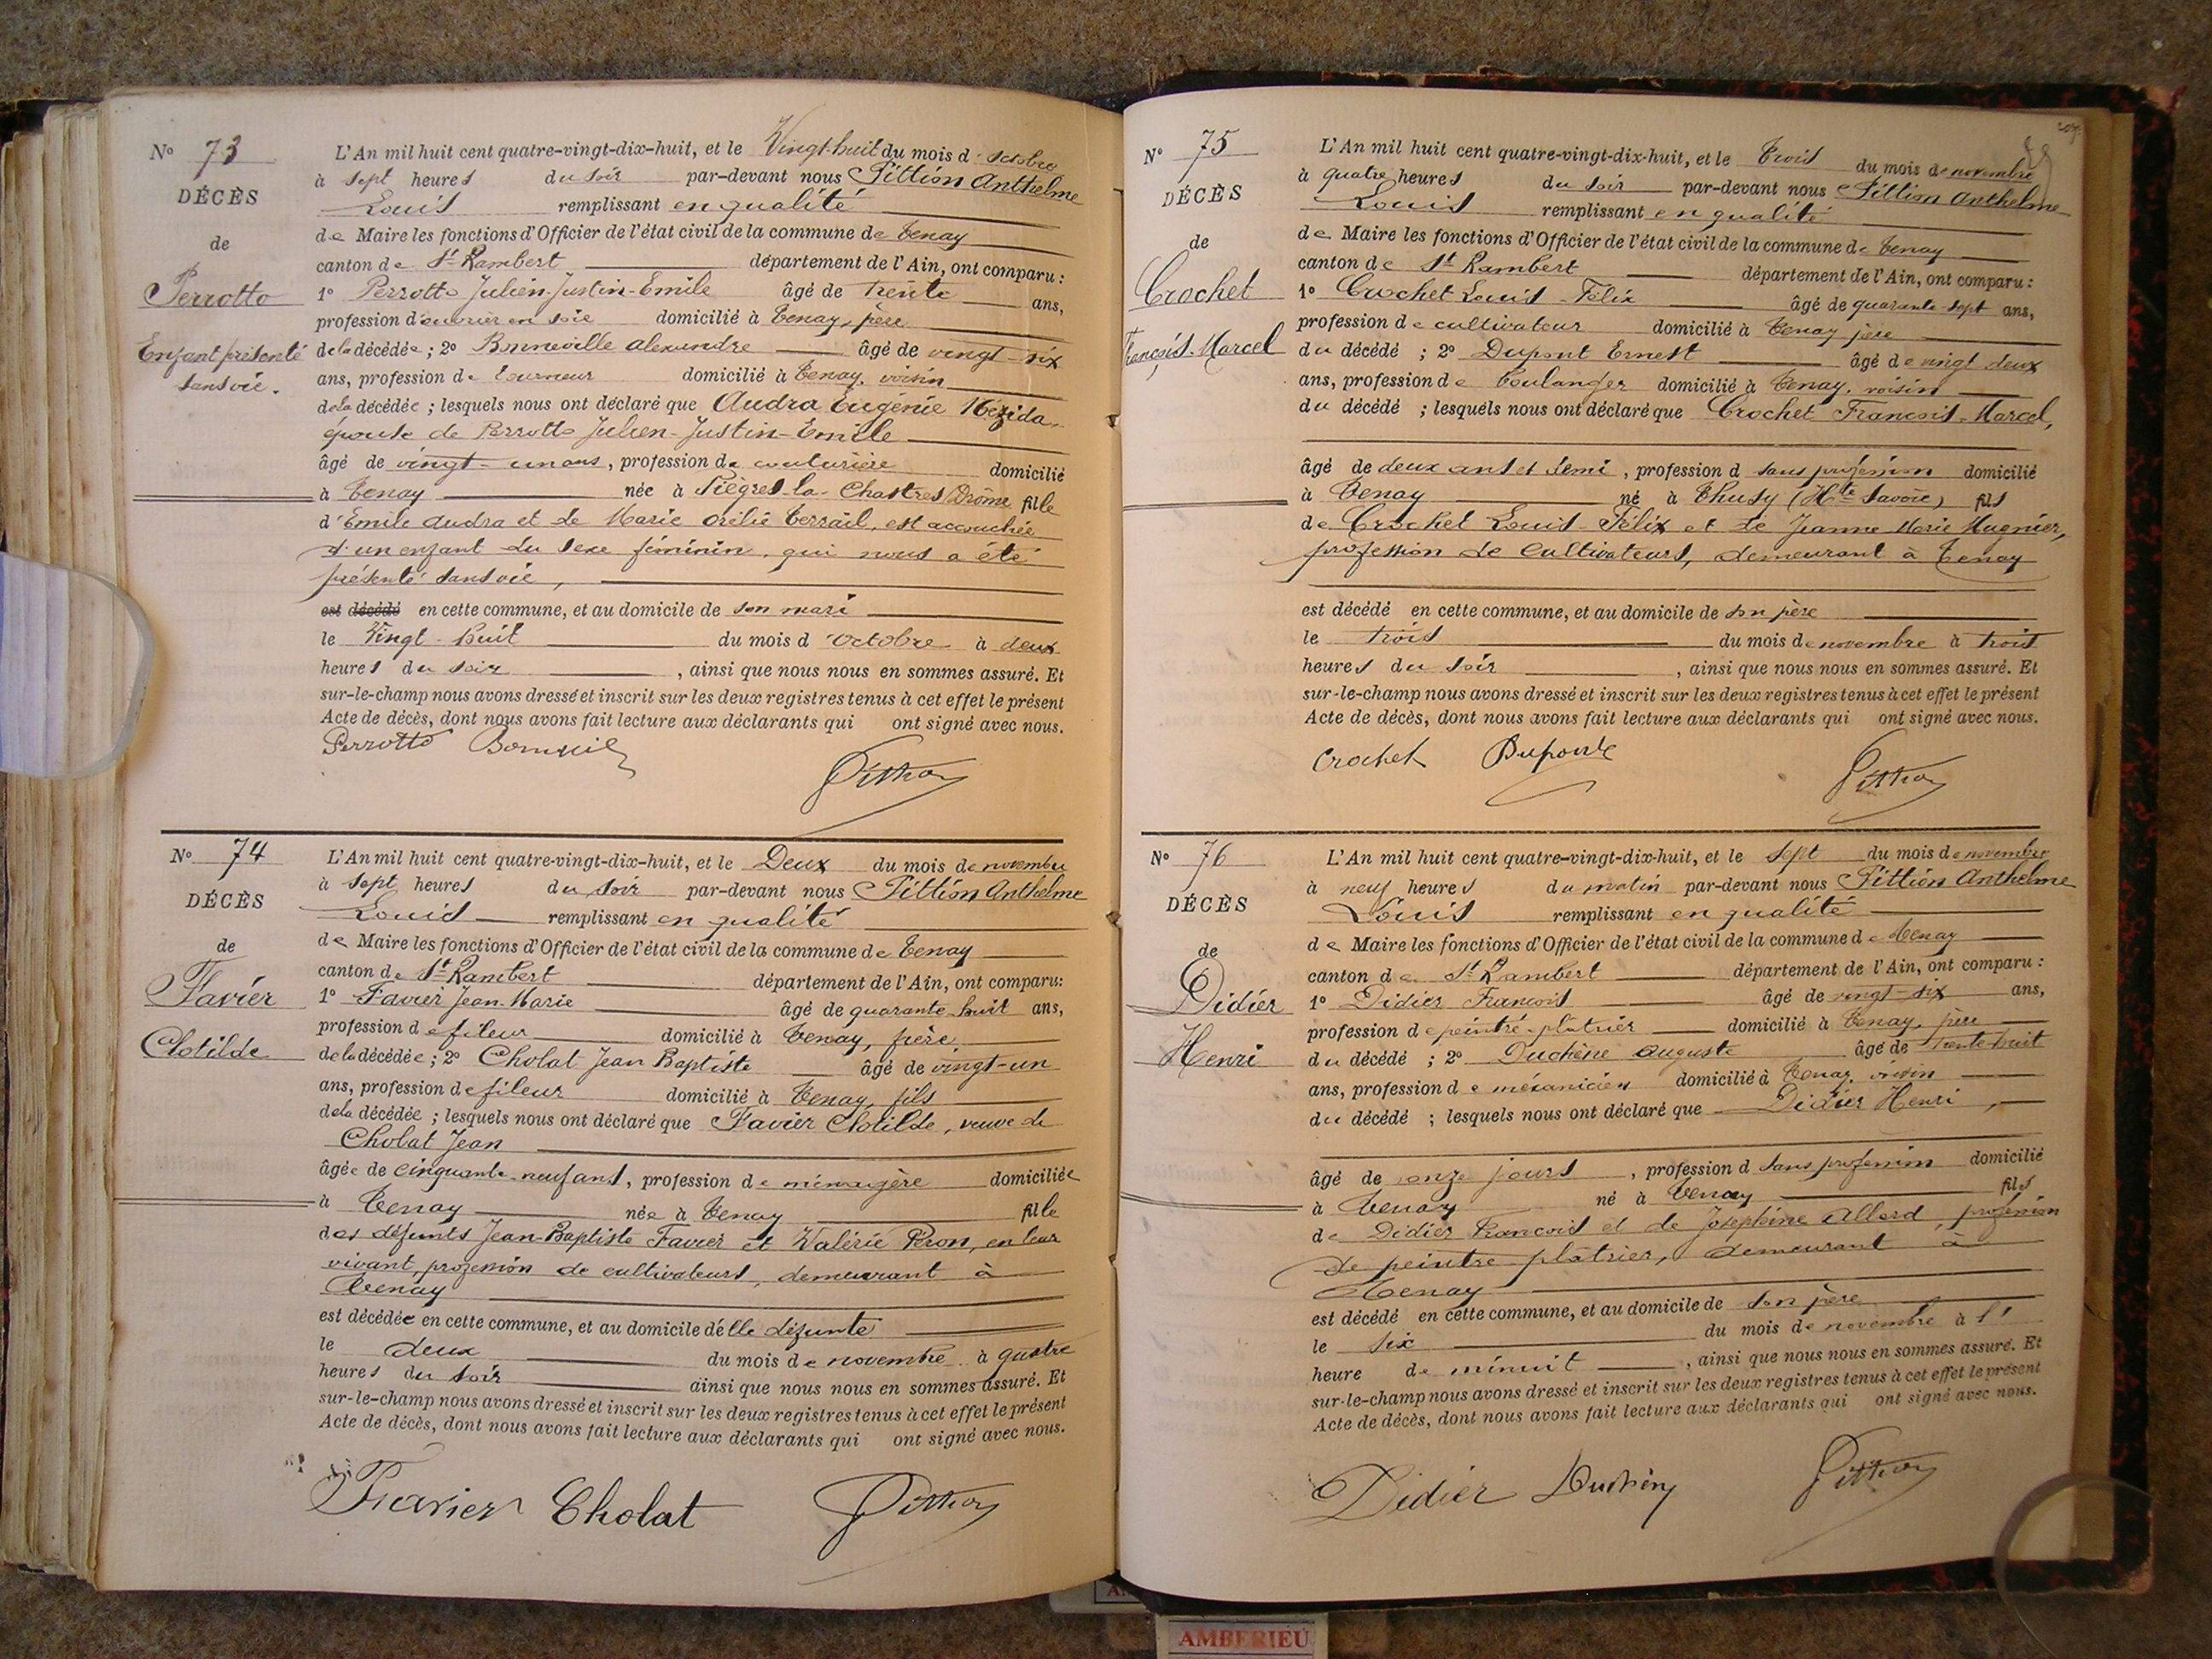 N° 73
DÉCÈS
de
Perrotto
Enfant présenté
sans vie.
L'An mil huit cent quatre-vingt-dix-huit, et le Vingt-huit du mois d'octobre
à sept heures du soir par-devant nous Pittion Anthelme
Louis remplissant en qualité
de Maire les fonctions d'Officier de l'état civil de la commune de Tenay
canton de St Rambert département de l'Ain, ont comparu :
1° Perrotto Julien-Justin-Emile âgé de trente ans,
profession d'ouvrier en soie domicilié à Tenay, père
de la décédée ; 2° Bonneville Alexandre âgé de vingt-six
ans, profession de tourneur domicilié à Tenay, voisin
de la décédée ; lesquels nous ont déclaré que Audra Eugénie
épouse de Perrotto Julien-Justin-Emile
âgé de vingt-un ans, profession de couturière domicilié
à Tenay née à Piègres-la-Chastres (Drôme fille
d'Emile Audra et de Marie Orélie Terrail, est accouchée
d'un enfant du sexe féminin, qui nous a été
présenté sans vie,
est décédé en cette commune, et au domicile de son mari
le Vingt-huit du mois d'octobre à deux
heures du soir, ainsi que nous nous en sommes assuré. Et
sur-le-champ nous avons dressé et inscrit sur les deux registres tenus à cet effet le présent
Acte de décès, dont nous avons fait lecture aux déclarants qui ont signé avec nous.
Perrotto Pittion
N° 74
DÉCÈS
de
Favier
Clotilde
L'An mil huit cent quatre-vingt-dix-huit, et le Deux du mois de novembre
à sept heures du soir par-devant nous Pittion Anthelme
Louis remplissant en qualité
de Maire les fonctions d'Officier de l'état civil de la commune de Tenay
canton de St Rambert département de l'Ain, ont comparu:
1° Favier Jean-Marie âgé de quarante-huit ans,
profession de fileur domicilié à Tenay, frère
de la décédée ; 2° Cholat Jean Baptiste âgé de vingt-un
ans, profession de fileur domicilié à Tenay, fils
de la décédée ; lesquels nous ont déclaré que Favier Clotilde, veuve de
Cholat Jean
âgée de cinquante-neuf ans, profession de ménagère domiciliée
à Tenay née à Tenay fille
des défunts Jean-Baptiste Favier et Valérie Péron, en leur
vivant, profession de cultivateurs, demeurant à
Tenay
est décédée en cette commune, et au domicile d'elle défunte
le deux du mois de novembre à quatre
heures du soir ainsi que nous nous en sommes assuré. Et
sur-le-champ nous avons dressé et inscrit sur les deux registres tenus à cet effet le présent
Acte de décès, dont nous avons fait lecture aux déclarants qui ont signé avec nous.
Favier Cholat Pittion
N° 75
DÉCÈS
de
Crochet
François-Marcel
L'An mil huit cent quatre-vingt-dix-huit, et le Trois du mois de novembre
à quatre heures du soir par-devant nous Pittion Anthelme
Louis remplissant en qualité
de Maire les fonctions d'Officier de l'état civil de la commune de Tenay
canton de St Rambert département de l'Ain, ont comparu :
1° Crochet Louis-Félix âgé de quarante-sept ans,
profession de cultivateur domicilié à Tenay père
du décédé ; 2° Dupont Ernest âgé de vingt deux
ans, profession de boulanger domicilié à Tenay, voisin
du décédé ; lesquels nous ont déclaré que Crochet François-Marcel,
âgé de deux ans et demi, profession d sans profession domicilié
à Tenay né à Thusy (Hte Savoie) fils
de Crochet Louis-Félix et de Jeanne Marie Hugnier,
profession de cultivateurs, demeurant à Tenay
est décédé en cette commune, et au domicile de son père
le trois du mois de novembre à trois
heures du soir, ainsi que nous nous en sommes assuré. Et
sur-le-champ nous avons dressé et inscrit sur les deux registres tenus à cet effet le présent
Acte de décès, dont nous avons fait lecture aux déclarants qui ont signé avec nous.
Crochet Dupont Pittion
N° 76
DÉCÈS
de
Didier
Henri
L'An mil huit cent quatre-vingt-dix-huit, et le sept du mois de novembre
à neuf heures du matin par-devant nous Pittion Anthelme
Louis remplissant en qualité
de Maire les fonctions d'Officier de l'état civil de la commune de Tenay
canton de St Rambert département de l'Ain, ont comparu :
1° Didier François âgé de vingt-six ans,
profession de peintre-plâtrier domicilié à Tenay, père
du décédé ; 2° Duchêne Auguste âgé de trente huit
ans, profession de mécanicien domicilié à Tenay, voisin
du décédé ; lesquels nous ont déclaré que Didier Henri,
âgé de onze jours, profession d sans profession domicilié
à Tenay né à Tenay fils
de Didier François et de Joséphine Allard, profession
de peintre plâtrier, demeurant à
Tenay
est décédé en cette commune, et au domicile de son père
le six du mois de novembre à l'
heure de minuit, ainsi que nous nous en sommes assuré. Et
sur-le-champ nous avons dressé et inscrit sur les deux registres tenus à cet effet le présent
Acte de décès, dont nous avons fait lecture aux déclarants qui ont signé avec nous.
Didier Duchêne Pittion
AMBERIEU